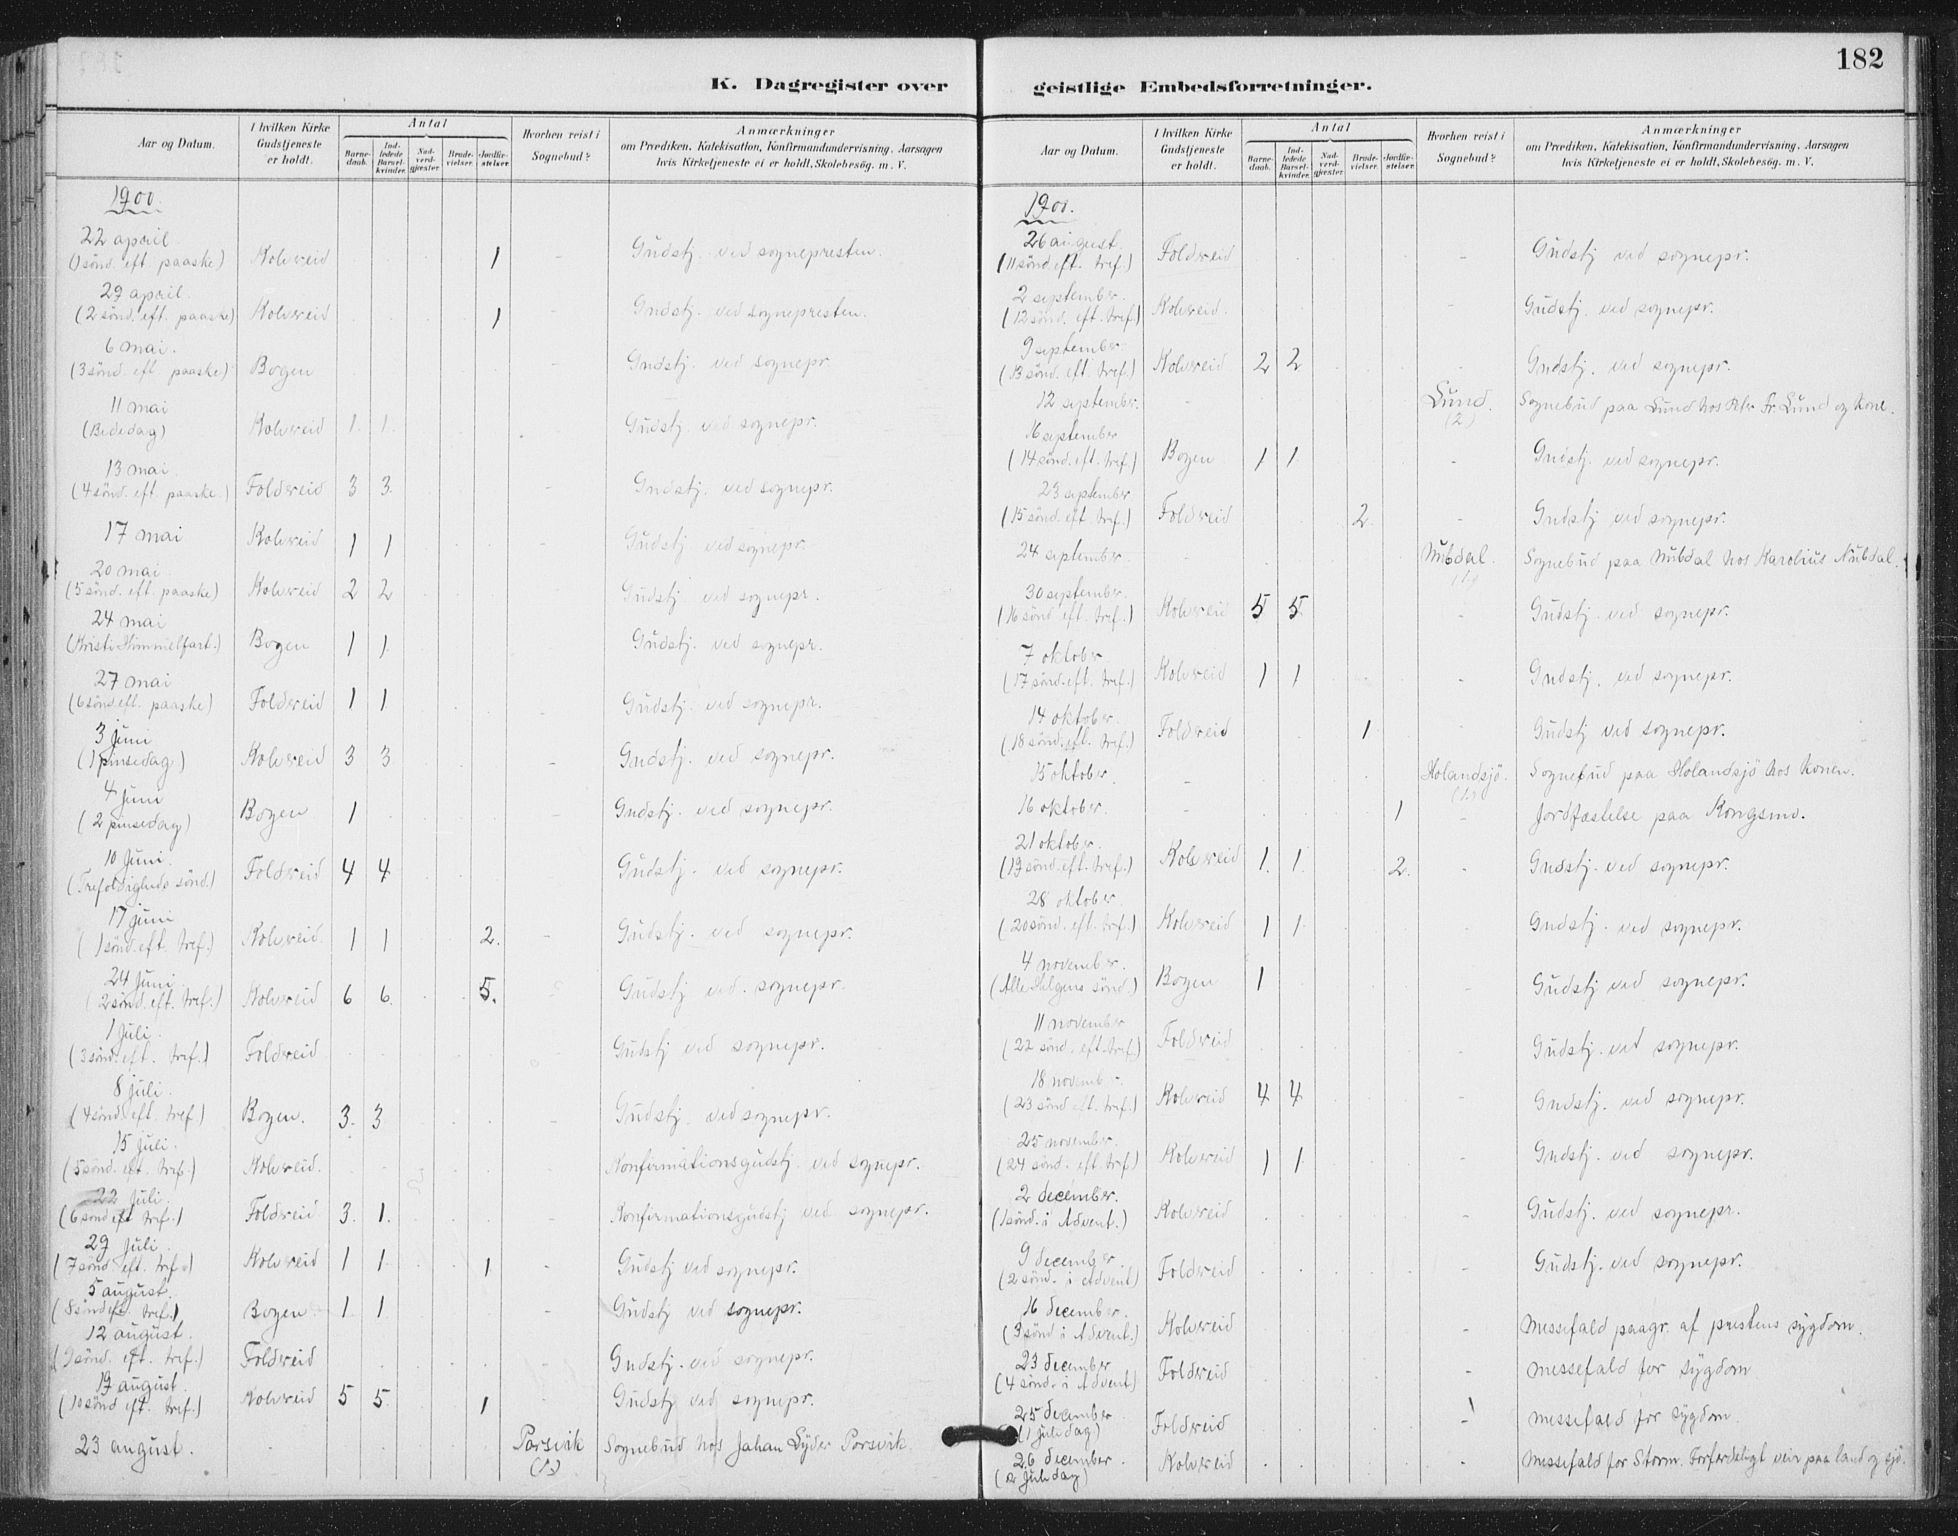 182
K. Dagregister over
geistlige Embedsforretninger.
Aar og Datum.
I hvilken Kirke Gudstjeneste er holdt.
Antal
Barne-daab.
Ind-ledede Barsel-kvinder.
Nad-verd-gjester
Brude-vielser.
Jordfæ-stelser.
Hvorhen reist i Sognebud?
Anmærkninger
om Prædiken, Katekisation, Konfirmandundervisning, Aarsagen
hvis Kirketjeneste ei er holdt, Skolebesög. m. V.
1900.
22 april
(1 sönd. eft. paaske) Kolvreid 1 - Gudstj. ved sognepresten.
29 april.
(2 sönd. eft. paaske) Kolvreid 1 - Gudstj. ved sognepresten.
6 mai.
(3 sönd. eft. paaske) Bogen - Gudstj. ved sognepr.
11 mai
(Bededag) Kolvreid 1. 1. Gudstj. ved sognepr.
13 mai.
(4 sönd. eft. paaske.) Foldreid 3 3. Gudstj. ved sognepr.
17 mai Kolvreid 1 1 - Gudstj. ved sognepr.
20 mai
(5 sönd. eft. paaske) Kolvreid 2 2 Gudstj. ved sognepr.
24 mai
(Kristi Himmelfart.) Bogen 1 1 Gudstj. ved sognepr.
27 mai
(6 sönd. eft. paaske) Foldreid 1 1 - Gudstj. ved sognepr.
3 juni
(1 pinsedag) Kolvreid 3 3. - Gudstj. ved sognepr.
4 juni
(2 pinsedag) Bogen 1 - Gudstj. ved sognepr.
10 juni.
(Trefoldigheds sönd.) Foldreid 4 4 Gudstj. ved sognepr.
17 juni
(1 sönd. eft. tref.) Kolvreid. 1 1 2. - Gudstj. ved sognepr.
24 juni
(2 sönd. eft. tref.) Kolvreid 6 6. 5. Gudstj ved. sognepr.
1 juli.
(3 sönd. eft. tref.) Foldreid Gudstj ved sognepr.
8 juli.
(4 sönd. eft. tref.) Bogen. 3. 3 - Gudstj. ved sognepr.
15 juli.
(5 sönd. eft. tref.) Kolvreid. - Konfirmationsgudstj. ved sognepr.
22 juli.
(6 sönd eft tref.) Foldreid 3. 1. - Konfirmationsgudstj ved sognepr.
29 juli.
(7 sönd. eft. tref.) Kolvreid 1 1. 1. - Gudstj ved sognepr.
5 august.
(8 sönd eft. tref.) Bogen 1. 1. - Gudstj ved sognepr.
12 august.
(9 sönd. eft. tref.) Foldreid - Gudstj. ved sognepr.
19 august.
(10 sönd eft. tref.) Kolvreid 5 5. 1 - Gudstj ved sognepr.
23 august. Porsvik (1) Sognebud hos Johan Lyder Porsvik.
Aar og Datum.
I hvilken Kirke Gudstjeneste er holdt.
Antal
Barne-daab.
Ind-ledede Barsel-kvinder.
Nad-verd-gjester
Brude-vielser.
Jordfæ-stelser.
Hvorhen reist i Sognebud?
Anmærkninger
om Prædiken, Katekisation, Konfirmandundervisning, Aarsagen
hvis Kirketjeneste ei er holdt, Skolebesög. m. V.
1900.
26 august.
(11 sönd eft. tref.) Foldreid - Gudstj ved sognepr.
2 september.
(12 sönd. eft. tref.) Kolvreid. - Gudstj. ved sognepr.
9 september
(13 sönd. eft. tref.) Kolvreid 2 2 - Gudstj. ved sognepr.
12 september. - Lund. (2) Sognebud paa Lund hos Fr. Lund og Kone.
16 september
(14 sönd. eft. tref.) Bogen 1 1. - Gudstj. ved sognepr.
23 september
(15 sönd. eft. tref.) Foldreid 2. - Gudstj ved sognepr.
24 september. - Nubdal. (1) Sognebud paa Nubdal hos Karolius Nubdal.
30 september.
(16 sönd eft. tref.) Kolvreid 5 5. - Gudstj ved sognepr.
7 oktober
(17 sönd. eft. tref.) Kolvreid 1 1. - Gudstj. ved sognepr.
14 oktober.
(18 sönd. eft. tref.) Foldreid 1 - Gudstj ved sognepr.
15 oktober. - Holandsjö. (1) Sognebud paa Holandsjö hos Konen.
16 oktober. - 1 - Jordfæstelse paa Kongsmo.
21 oktober.
(19 sönd. eft. tref.) Kolvreid 1. 1. 2. - Gudstj. ved sognepr.
28 oktober.
(20 sönd. eft. tref.) Kolvreid 1 1. - Gudstj. ved sognepr.
4 november.
(Alle Helgens sönd.) Bogen 1 Gudstj ved sognepr.
11 november
(22 sönd. eft. tref.) Foldreid - Gudstj. ved sognepr.
18 november.
(23 sönd eft. tref.) Kolvreid 4 4 - Gudstj. ved sognepr.
25 november.
(24 sönd. eft. tref.) Kolvreid 1 1. Gudstj. ved sognepr.
2 december.
(1 sönd. i Advent.) Kolvreid - Gudstj. ved sognepr.
9 december
(2 sönd. i advent) Foldreid - Gudstj. ved sognepr.
16 december.
(3 sönd i Advent.) Kolvreid - Messefald paagr. af prestens sygdom.
23 december
(4 sönd. i Advent) Foldreid - Messefald for sygdom
25 december
(1 juledag) Foldreid - Messefald for sygdom.
26 december.
(2 juledag) Kolvreid Messefald for Storm. Forferdeligt veir paa land og sjö.